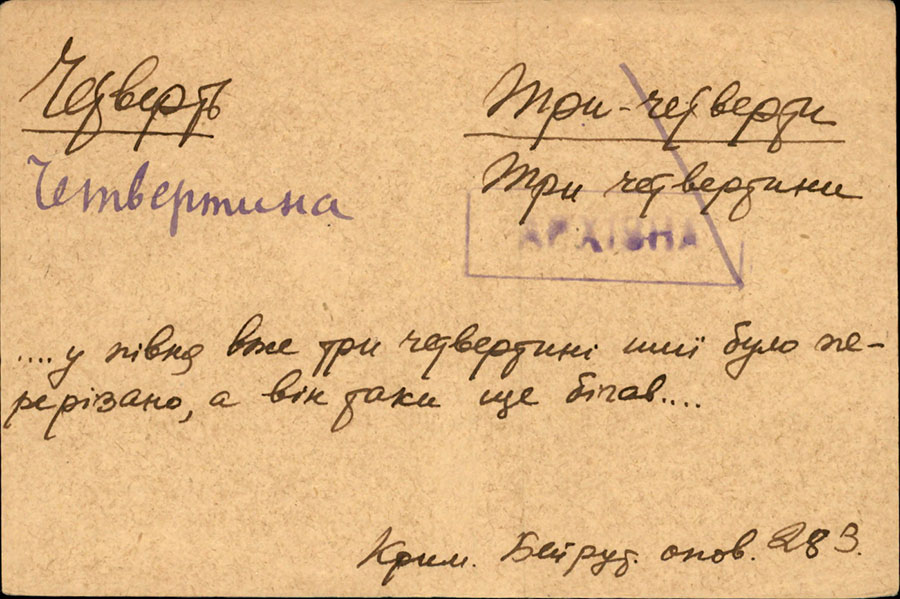 Четверть
Три-четверти
Четвертина
Три четвертини
АРХІВНА
.... у півня вже три четвертині шиї було пе-
рерізано, а він таки ще бігав....
Крим. Бейрут. опов. 283.